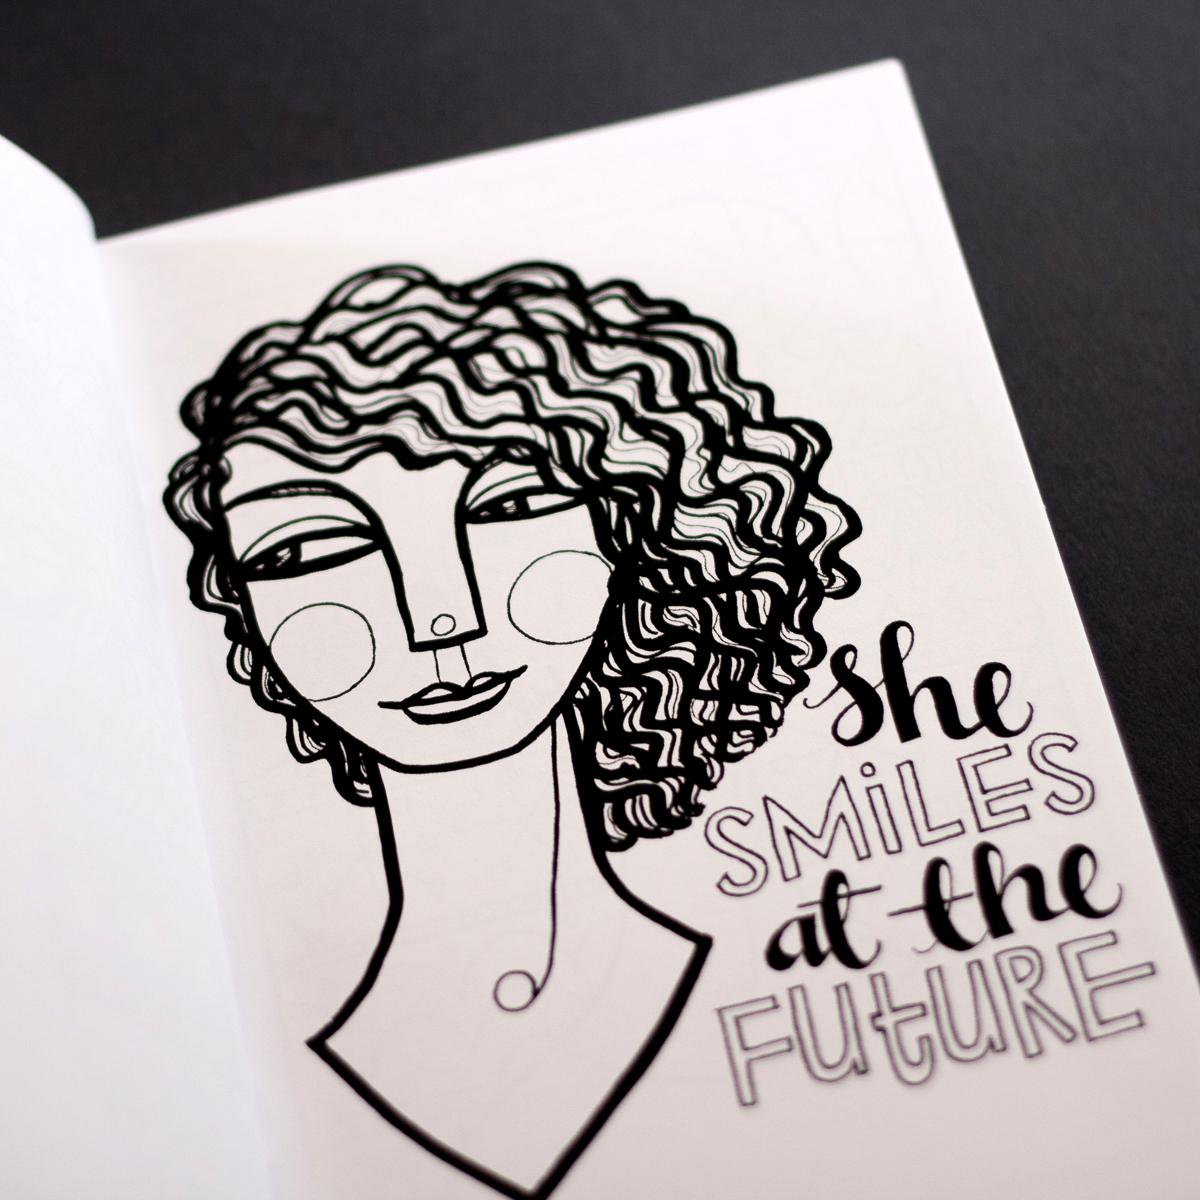 she
SMiLES
at the
FUtURE